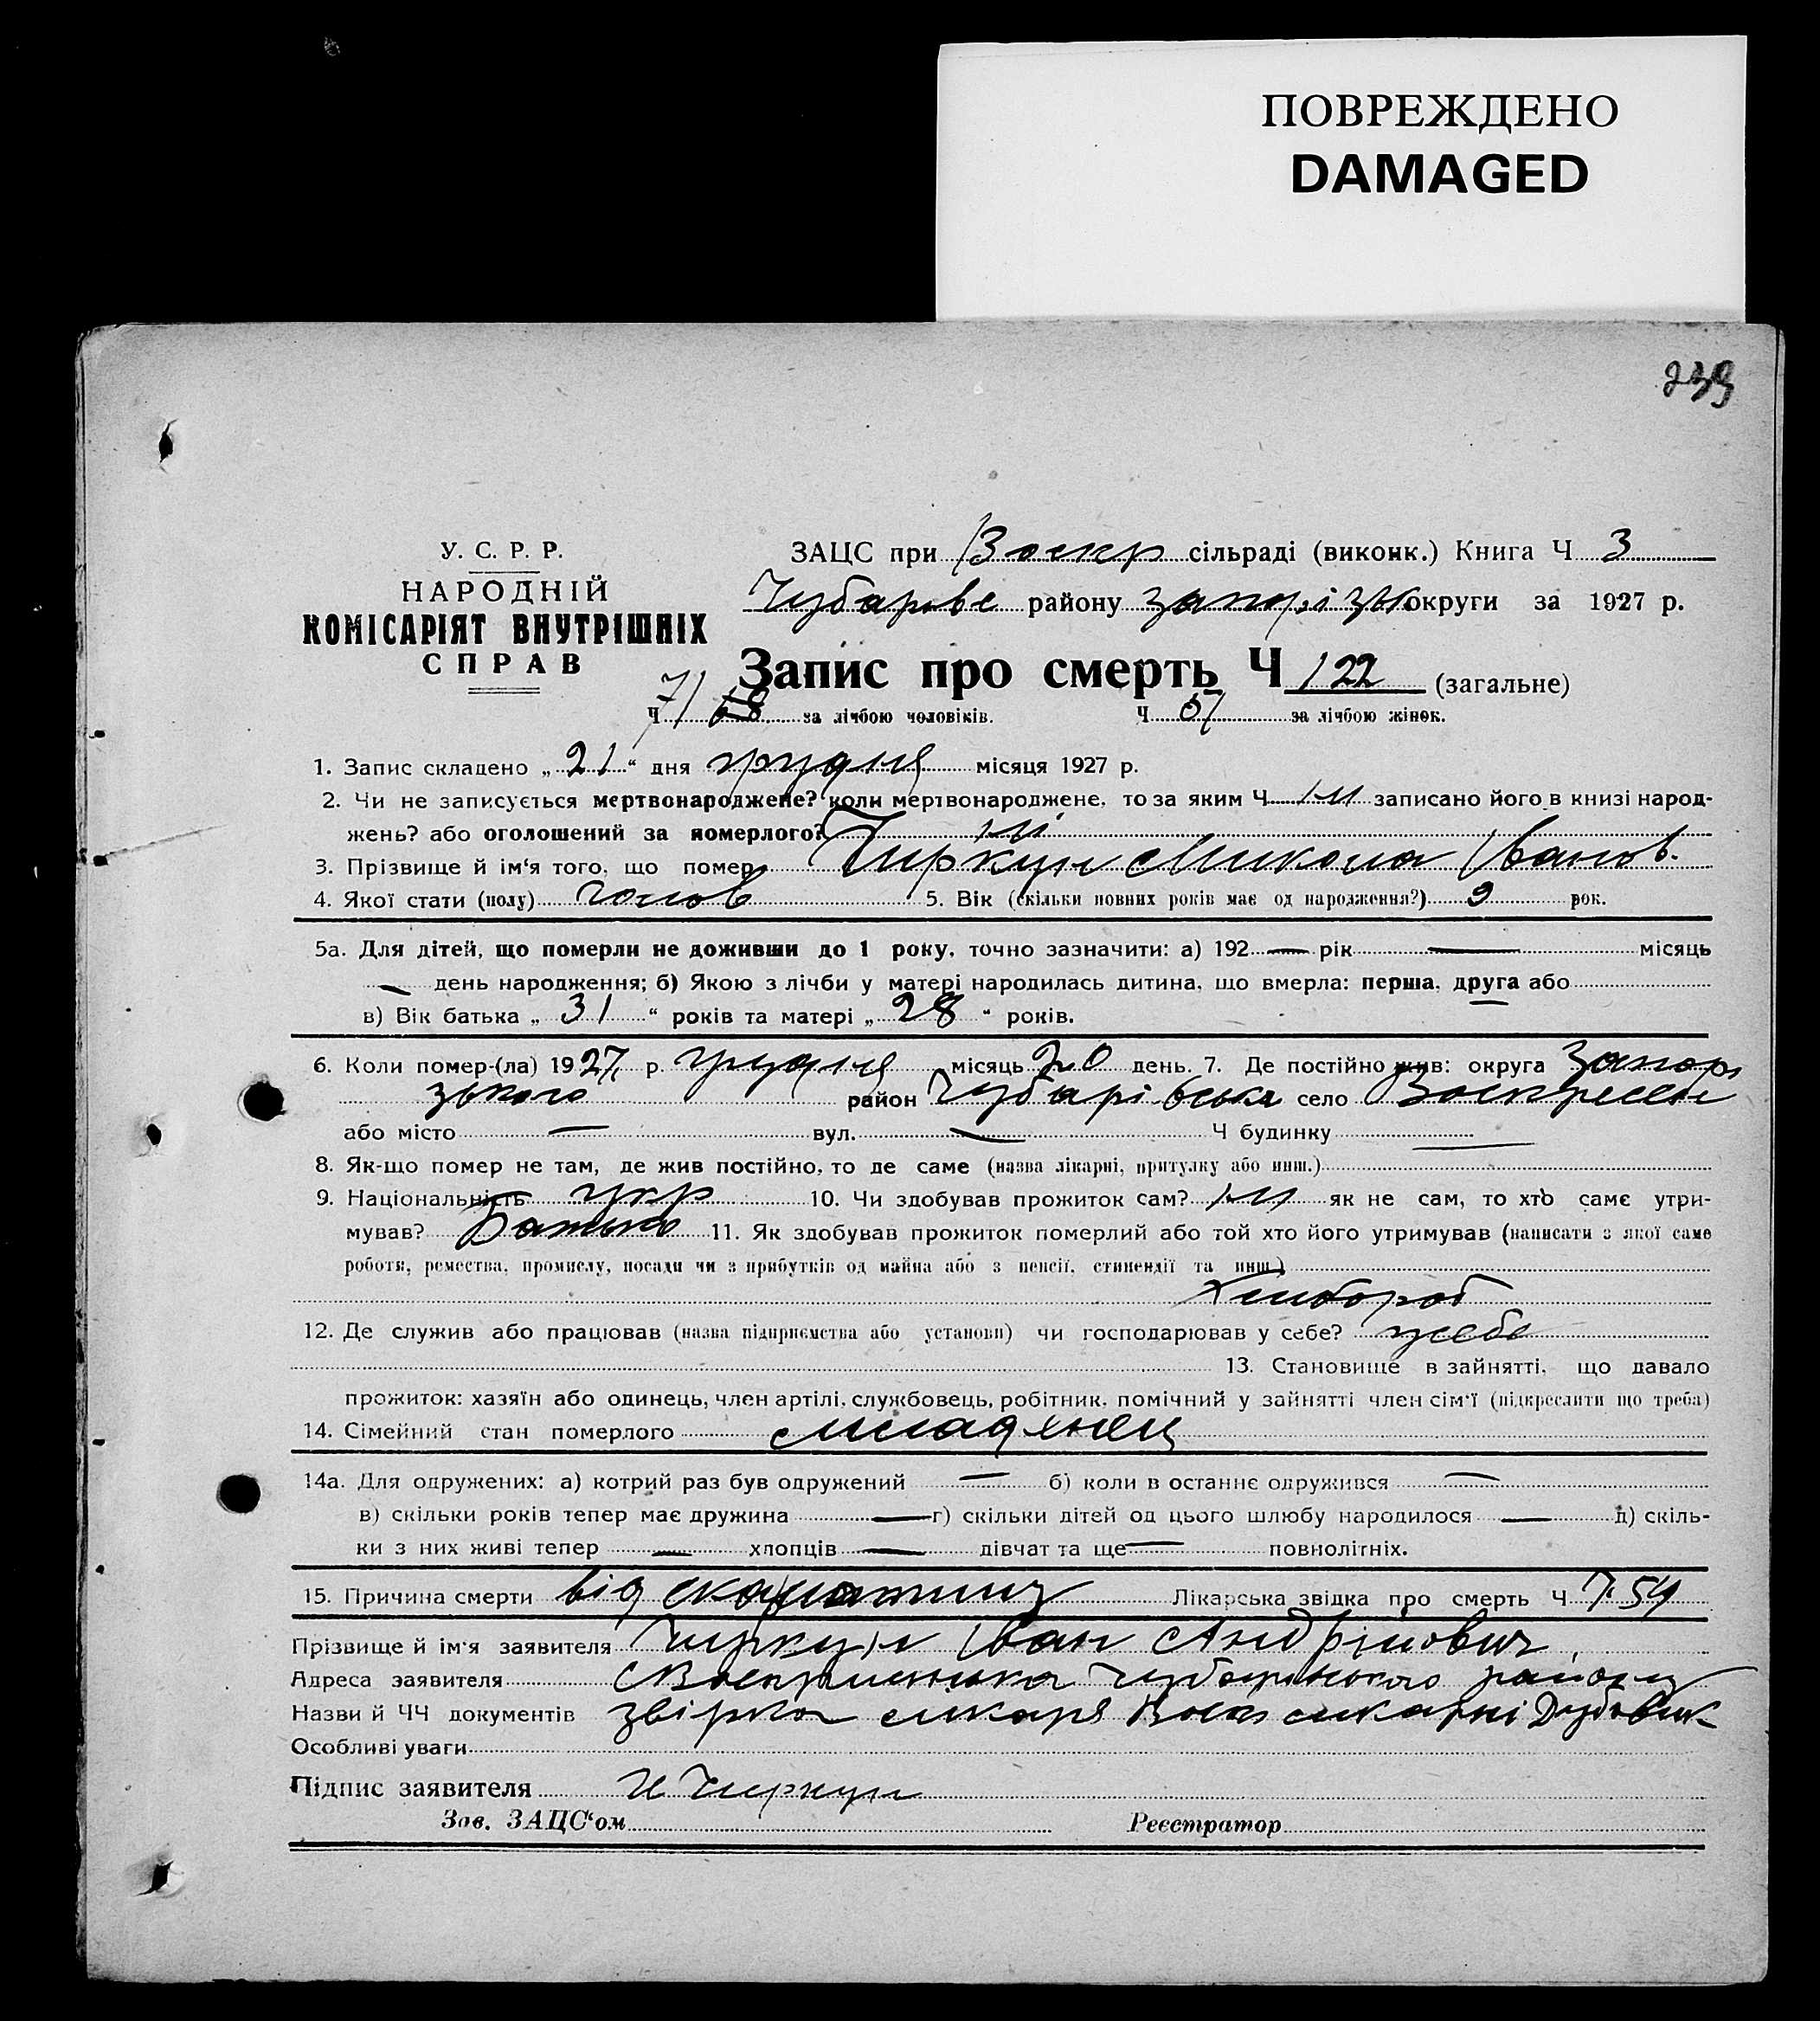 ПОВРЕЖДЕНО
DAMAGED
239
У. С. Р. Р.
НАРОДНІЙ
КОМІСАРІЯТ ВНУТРІШНІХ
СПРАВ
ЗАЦС при Воскр сільраді (виконк.) Книга Ч 3
Чубарівс району Запорізьк округи за 1927 р.
Запис про смерть Ч 122 (загальне)
Ч 71 68 за лічбою чоловіків. Ч 51 за лічбою жінок.
1. Запис складено „ 21 “ дня грудня місяця 1927 р.
2. Чи не записується мертвонароджене? коли мертвонароджене, то за яким Ч ні записано його в книзі народ-
жень? або оголошений за померлого? ні
3. Прізвище й ім‘я того, що помер Чиркун Микола Іванов.
4. Якої стати (полу) чолов 5. Вік (скільки повних років має од народження?) 9 рок.
5а. Для дітей, що померли не доживши до 1 року, точно зазначити: а) 192 — рік — місяць
— день народження; б) Якою з лічби у матері народилась дитина, що вмерла: перша, друга або
в) Вік батька „ 31 “ років та матері „ 28 “ років.
6. Коли помер-(ла) 1927 р. грудня місяць 20 день. 7. Де постійно жив: округа Запорі
зького район Чубарівська село Воскресен
або місто — вул. — Ч будинку —
8. Як-що помер не там, де жив постійно, то де саме (назва лікарні, притулку або инш.)
9. Національність укр 10. Чи здобував прожиток сам? ні як не сам, то хто саме утри-
мував? Батько 11. Як здобував прожиток померлий або той хто його утримував (написати з якої саме
роботи, ремества, промислу, посади чи з прибутків од майна або з пенсії, стипендії та инш.)
Хлібороб
12. Де служив або працював (назва підприємства або установи) чи господарював у себе? у себе
13. Становище в зайнятті, що давало
прожиток: хазяїн або одинець, член артілі, службовець, робітник, помічний у зайнятті член сім‘ї (підкреслити що треба)
14. Сімейний стан померлого младенец
14а. Для одружених: а) котрий раз був одружений — б) коли в останнє одружився —
в) скільки років тепер має дружина — г) скільки дітей од цього шлюбу народилося — д) скіль-
ки з них живі тепер — хлопців — дівчат та ще — повнолітніх.
15. Причина смерти від скарлатини Лікарська звідка про смерть Ч 754
Прізвище й ім‘я заявителя Чиркун Іван Андрійович
Адреса заявителя Чубарівського району
Назви й ЧЧ документів лікаря Воск лікарні
Особливі уваги
Підпис заявителя И Чиркун
Зав. ЗАЦС‘ом Реєстратор